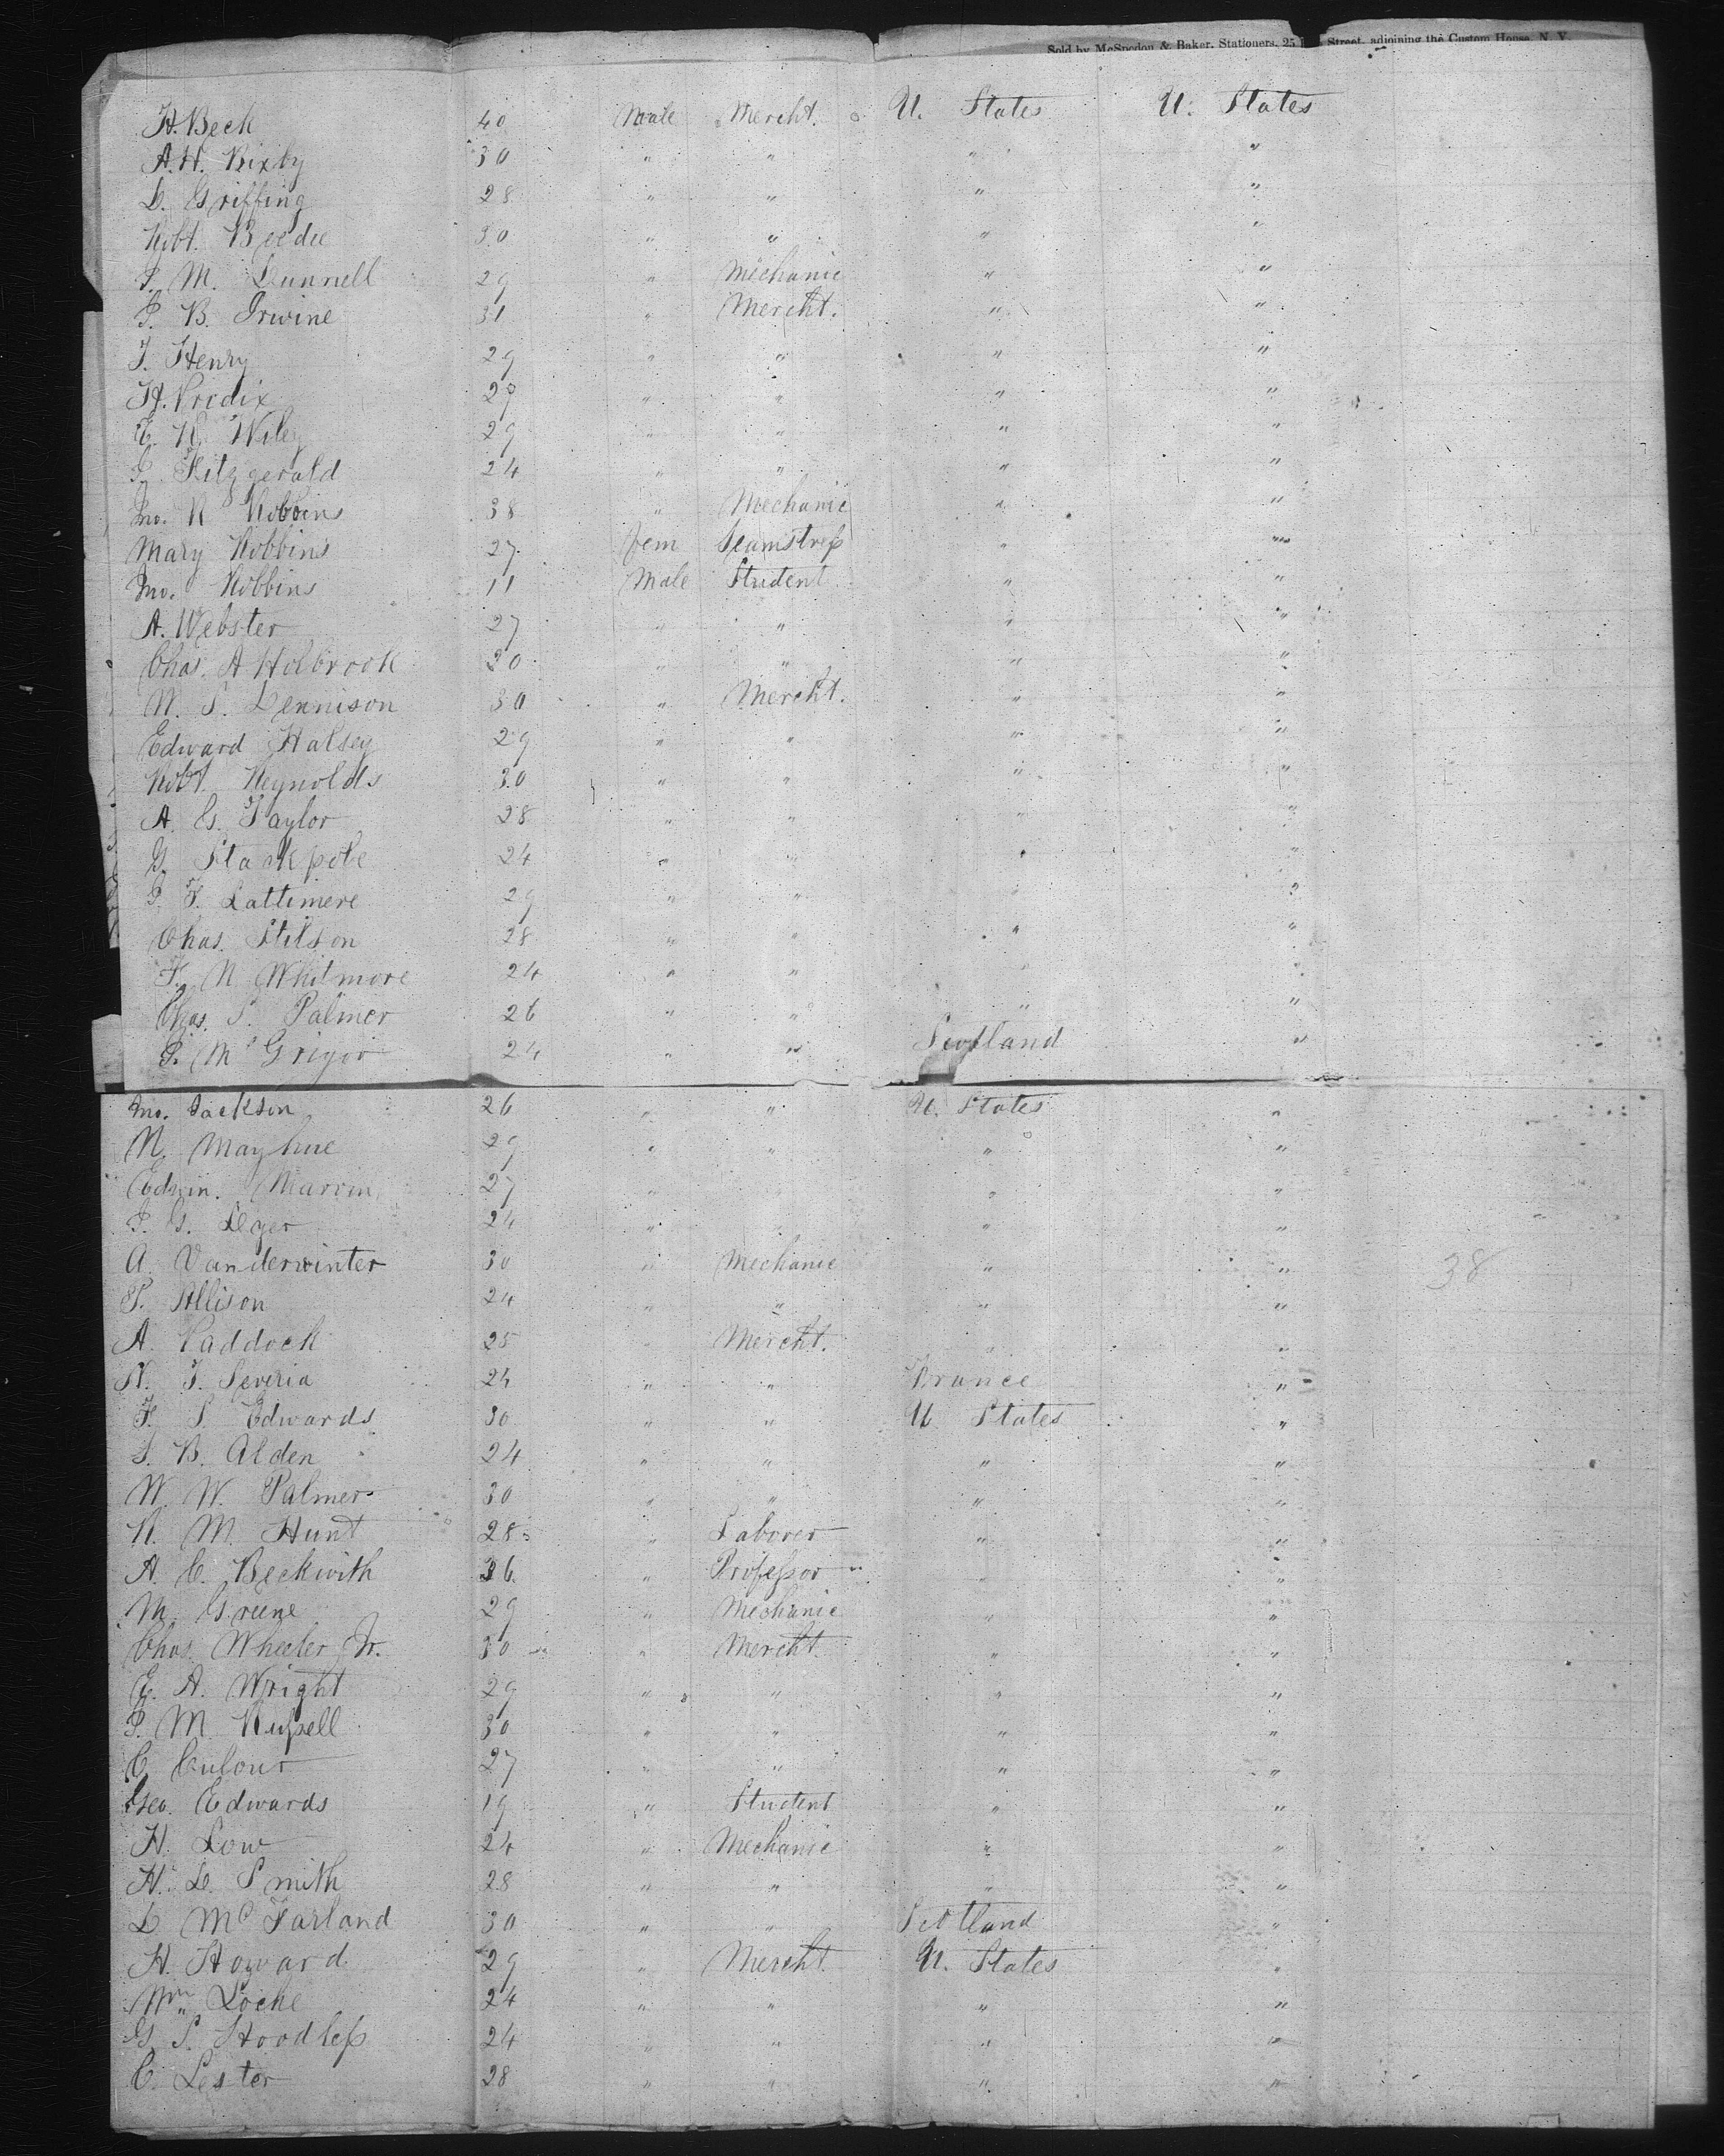 Sold by McSpedon & Baker, Stationers, 25 Street, adjoining the Custom House, N. Y.
H. Beck 40 Male Mercht. U. States U. States
A. H. Bixby 30 " " " "
D. Griffing 28 " " " "
Robt. Beedee 30 " " " "
S. M. Dunnell 29 " Mechanic " "
S. B. Irwine 31 " Mercht. " "
J. Henry 29 " " " "
H. Predix 29 " " " "
E. R. Wiley 29 " " " "
Fitzgerald 24 " " " "
Jno. R Robbins 38 " Mechanic " "
Mary Robbins 27 Fem Seamstress " "
Jno. Robbins 11 Male Student " "
A. Webster 27 " " " "
Chas. A Holbrook 20 " " " "
N. S. Dennison 30 " Mercht. " "
Edward Halsey 29 " " " "
Robt. Reynolds 30 " " " "
A. G. Taylor 28 " " " "
G. Stackpole 24 " " " "
F. Lattimere 29 " " " "
Chas. Stilson 28 " " " "
F. N. Whitmore 24 " " " "
Chas. S. Palmer 26 " " " "
McGrigor 24 " " Scotland "
Jno. Jackson 26 " " U. States "
N. Mayhue 29 " " " "
Edwin. Marvin 27 " " " "
Leger 24 " " " "
A. Vanderwinter 30 " Mechanic " " 38
P. Allison 24 " " " "
A. Paddock 25 " Mercht. " "
N. J. Severia 24 " " France "
F. S. Edwards 30 " " U. States "
S. B. Alden 24 " " " "
W. W. Palmer 30 " " " "
R. M. Hunt 28 " Laborer " "
A. C. Beckwith 36 " Professor " "
M. Greene 29 " Mechanic " "
Chas. Wheeler Jr. 30 " Mercht. " "
E. A. Wright 29 " " " "
P. M. Russell 30 " " " "
C. Culour 27 " " " "
Geo. Edwards 19 " Student " "
H. Low 24 " Mechanic " "
H. D. Smith 28 " " " "
D McFarland 30 " " Scotland "
H. Howard 29 " Mercht. U. States "
Wm Locke 24 " " " "
G. S. Hoodless 24 " " " "
C. Lester 28 " " " "